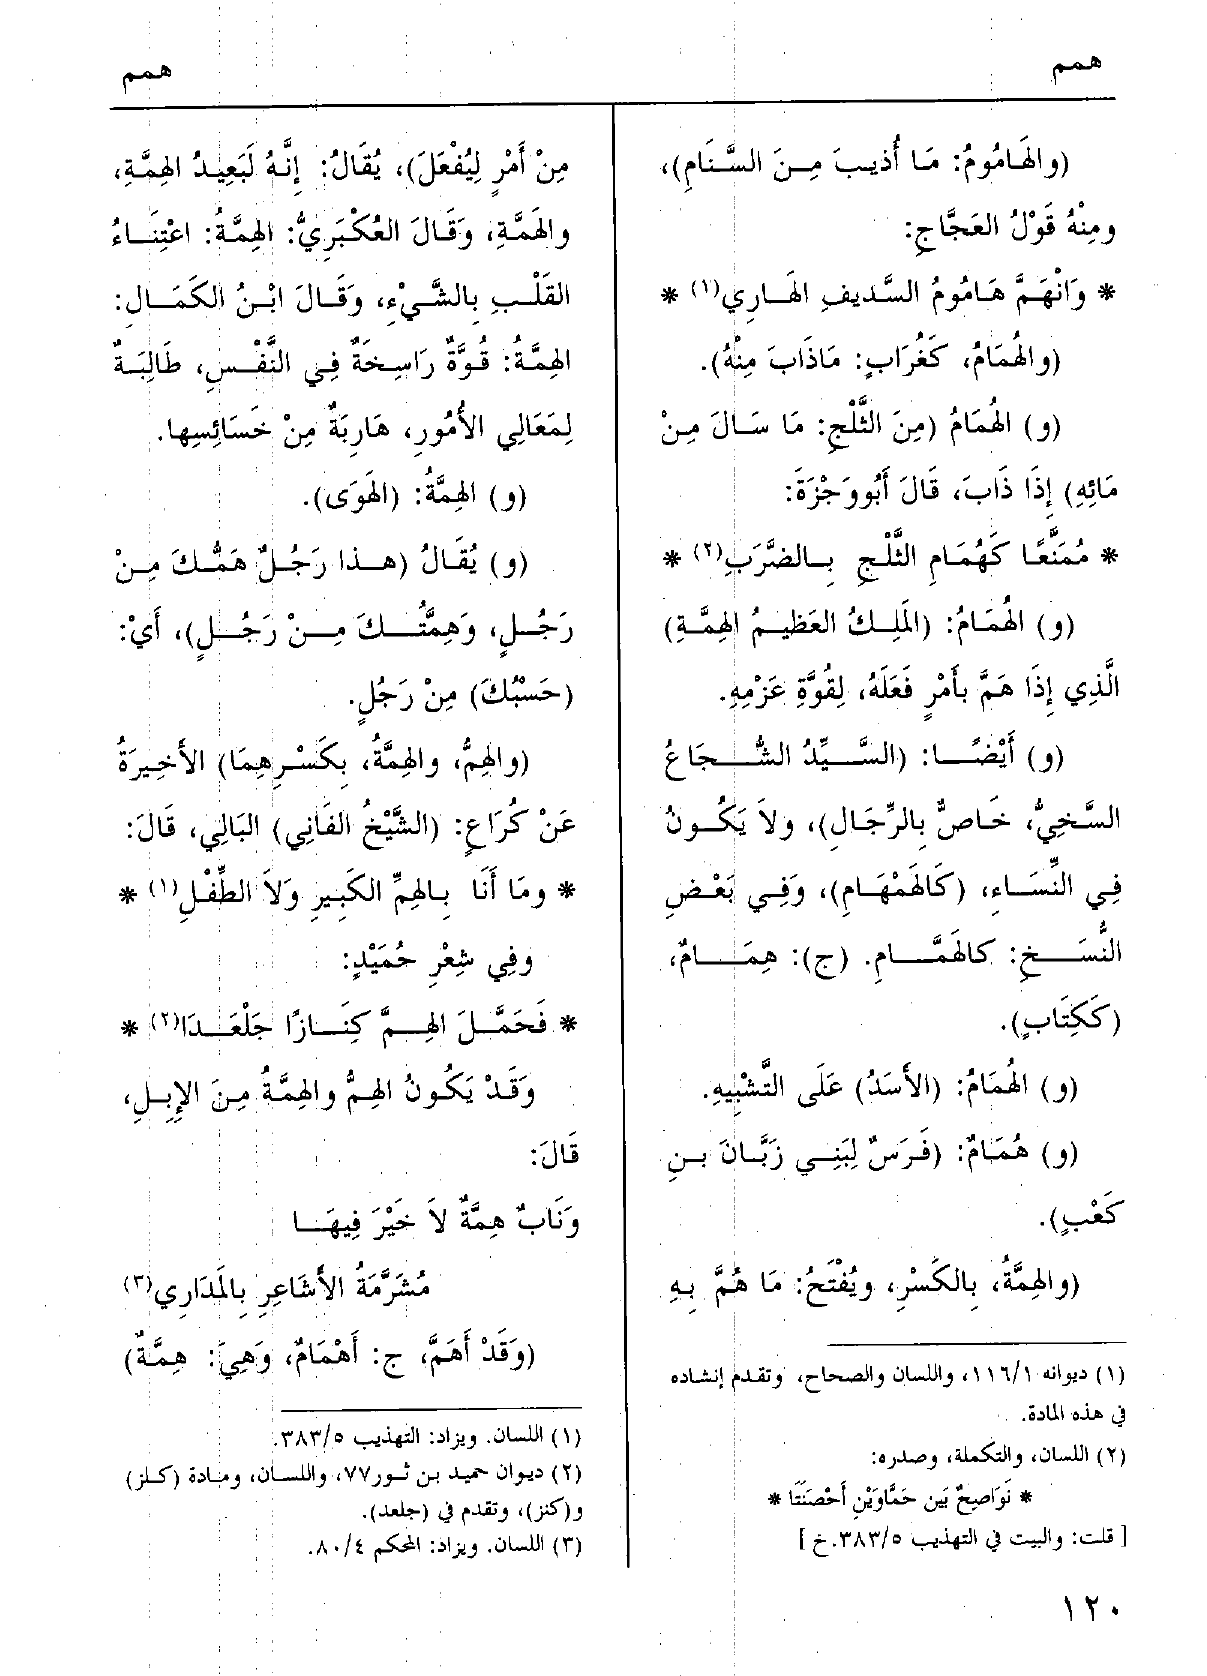 همم
همم
(والهَامُومُ: مَا أُذِيبَ مِنَ السَّنَامِ)،
ومِنْهُ قَوْلُ العَجَّاجِ:
* وَانْهَمَّ هَامُومُ السَّدِيفِ الهَارِي(١) *
(والهُمَامُ، كَغُرَابٍ: مَاذَابَ مِنْهُ).
(و) الهُمَامُ (مِنَ الثَّلْجِ: مَا سَالَ مِنْ
مَائِهِ) إِذَا ذَابَ، قَالَ أَبُووَجْزَةَ:
* مُمَنَّعًا كَهُمَامِ الثَّلْجِ بِالضَّرَبِ(٢) *
(و) الهُمَامُ: (المَلِكُ العَظِيمُ الهِمَّةِ)
الَّذِي إِذَا هَمَّ بأَمْرٍ فَعَلَهُ، لِقُوَّةِ عَزْمِهِ.
(و) أَيْضًا: (السَّيِّدُ الشُّجَاعُ
السَّخِيُّ، خَاصٌّ بِالرِّجَالِ)، ولاَ يَكُونُ
فِي النِّسَاءِ، (كَالهَمْهَامِ)، وَفِي بَعْضِ
النُّسَخِ: كالهَمَّامِ. (ج): هِمَامٌ،
(كَكِتَابٍ).
(و) الهُمَامُ: (الأَسَدُ) عَلَى التَّشْبِيهِ.
(و) هُمَامٌ: (فَرَسٌ لِبَنِي زَبَّانَ بنِ
كَعْبٍ).
(والهِمَّةُ، بِالكَسْرِ، ويُفْتَحُ: مَا هُمَّ بِهِ
(١) ديوانه ١/ ١١٦، واللسان والصحاح، وتقدم إنشاده
في هذه المادة.
(٢) اللسان، والتكملة، وصدره:
* نَوَاصِحٌ بَين حَمَّاوَيْنِ أَحْصَنَتَا *
[ قلت: والبيت في التهذيب ٥/ ٣٨٣. خ ]
مِنْ أَمْرٍ لِيُفْعَلَ)، يُقَالُ: إِنَّهُ لَبَعِيدُ الهِمَّةِ،
والهَمَّةِ، وَقَالَ العُكْبَرِيُّ: الهِمَّةُ: اعْتِنَاءُ
القَلْبِ بِالشَّيْءِ، وَقَالَ ابْنُ الكَمَالِ:
الهِمَّةُ: قُوَّةٌ رَاسِخَةٌ فِي النَّفْسِ، طَالِبَةٌ
لِمَعَالِي الأُمُورِ، هَارِبَةٌ مِنْ خَسَائِسِها.
(و) الهِمَّةُ: (الهَوَى).
(و) يُقَالُ (هذا رَجُلٌ هَمُّكَ مِنْ
رَجُلٍ، وَهِمَّتُكَ مِنْ رَجُلٍ)، أَيْ:
(حَسْبُكَ) مِنْ رَجُلٍ.
(والهِمُّ، والهِمَّةُ، بِكَسْرِهِمَا) الأَخِيرَةُ
عَنْ كُرَاعٍ: (الشَّيْخُ الفَانِي) البَالِي، قَالَ:
* ومَا أَنَا بِالهِمِّ الكَبِيرِ وَلاَ الطِّفْلِ(١) *
وفِي شِعْرِ حُمَيْدٍ:
* فَحَمَّلَ الهِمَّ كِنَازًا جَلْعَدَا(٢) *
وَقَدْ يَكُونُ الهِمُّ والهِمَّةُ مِنَ الإِبِلِ،
قَالَ:
وَنَابٌ هِمَّةٌ لاَ خَيْرَ فِيهَا
مُشَرَّمَةُ الأَشَاعِرِ بِالمَدَارِي(٣)
(وَقَدْ أَهَمَّ، ج: أَهْمَامٌ، وَهِيَ: هِمَّةٌ)
(١) اللسان. ويزاد: التهذيب ٥/ ٣٨٣.
(٢) ديوان حميد بن ثور٧٧، واللسان، ومادة (كلز)
و(كنز)، وتقدم في (جلعد).
(٣) اللسان. ويزاد: المحكم ٤/ ٨٠.
١٢٠